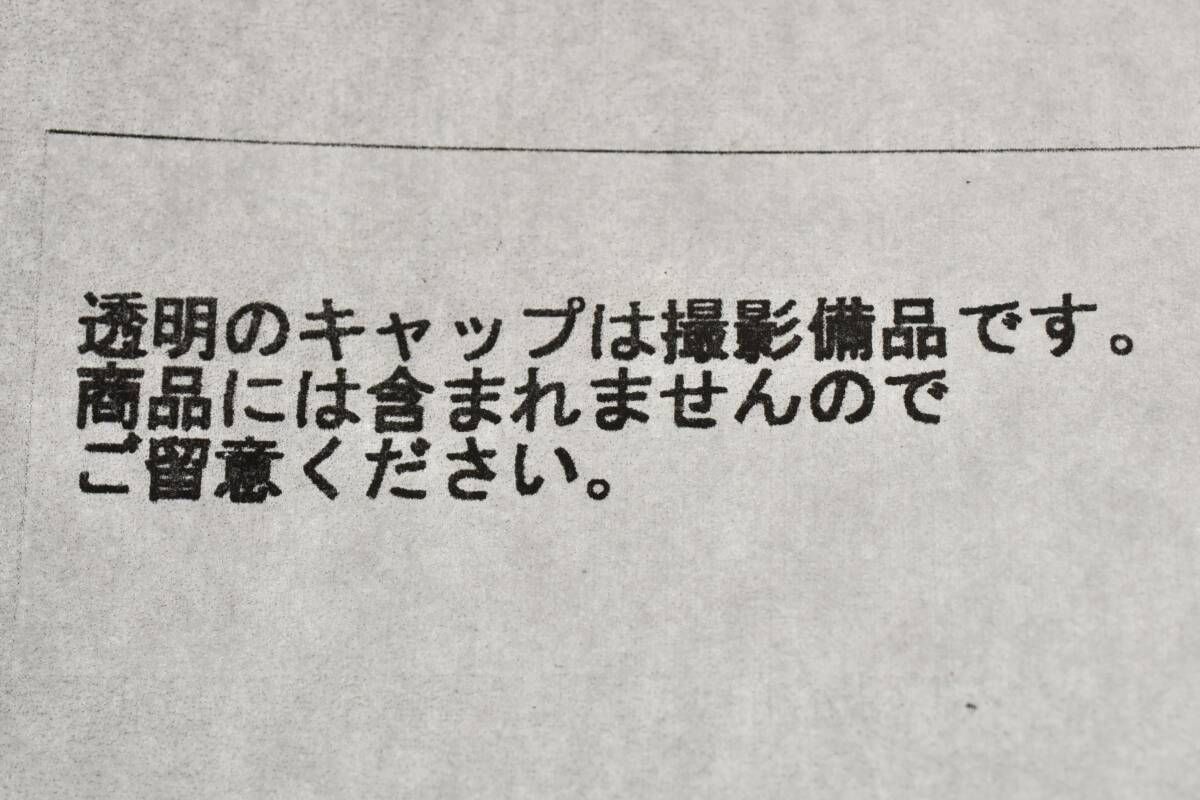 透明のキャップは撮影備品です。
商品には含まれませんので
ご留意ください。